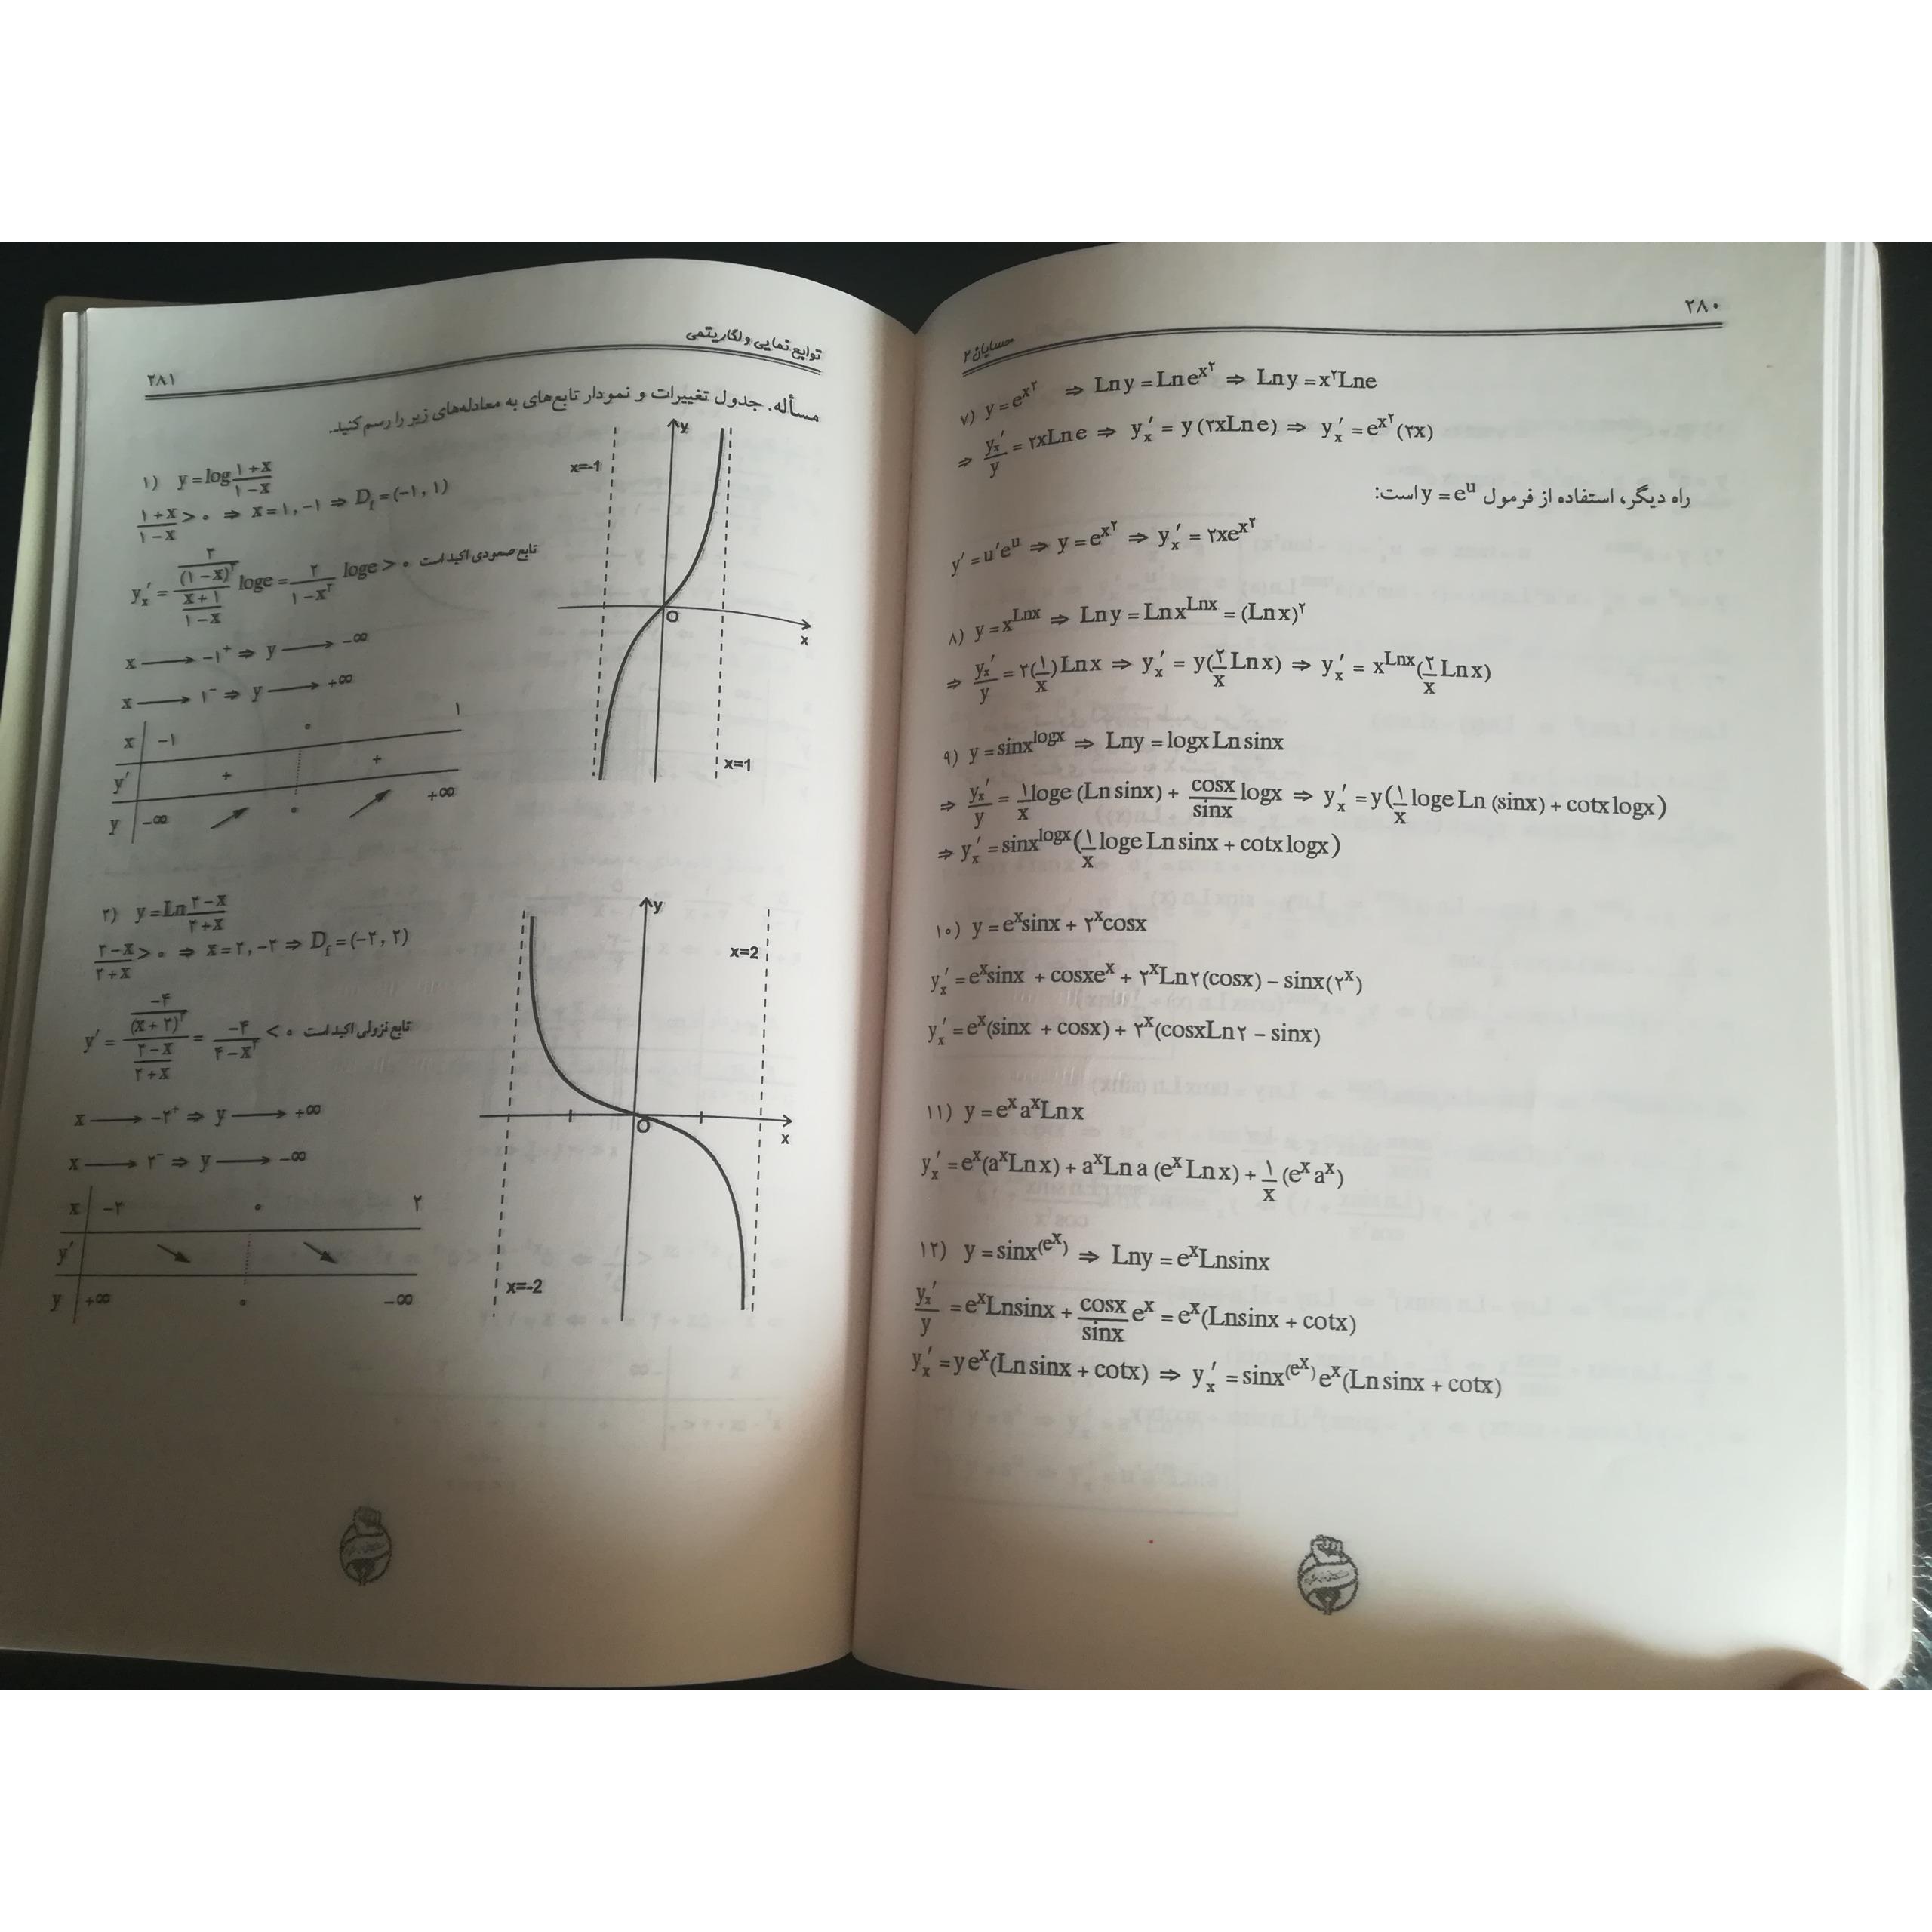 ۲۸۰
حسابان ۲
۷) y = e^x^۲ ⇒ Lny = Lne^x^۲ ⇒ Lny = x^۲Lne
⇒ y'ₓ/y = ۲xLne ⇒ y'ₓ = y(۲xLne) ⇒ y'ₓ = e^x^۲(۲x)
راه دیگر، استفاده از فرمول y = e^u است:
y' = u'e^u ⇒ y = e^x^۲ ⇒ y'ₓ = ۲xe^x^۲
۸) y = x^Lnx ⇒ Lny = Lnx^Lnx = (Lnx)^۲
⇒ y'ₓ/y = ۲(۱/x)Lnx ⇒ y'ₓ = y(۲/x Lnx) ⇒ y'ₓ = x^Lnx(۲/x Lnx)
۹) y = sinx^logx ⇒ Lny = logx Lnsinx
⇒ y'ₓ/y = ۱/x loge (Lnsinx) + cosx/sinx logx ⇒ y'ₓ = y(۱/x loge Ln (sinx) + cotx logx)
⇒ y'ₓ = sinx^logx(۱/x loge Lnsinx + cotx logx)
۱۰) y = e^x sinx + ۲^x cosx
y'ₓ = e^x sinx + cosxe^x + ۲^x Ln۲(cosx) − sinx(۲^x)
y'ₓ = e^x(sinx + cosx) + ۲^x(cosxLn۲ − sinx)
۱۱) y = e^x a^x Lnx
y'ₓ = e^x(a^x Lnx) + a^x Lna (e^x Lnx) + ۱/x (e^x a^x)
۱۲) y = sinx^(e^x) ⇒ Lny = e^x Lnsinx
y'ₓ/y = e^x Lnsinx + cosx/sinx e^x = e^x(Lnsinx + cotx)
y'ₓ = ye^x(Lnsinx + cotx) ⇒ y'ₓ = sinx^(e^x) e^x(Lnsinx + cotx)
توابع نمایی و لگاریتمی
۲۸۱
مسأله. جدول تغییرات و نمودار تابع‌های به معادله‌های زیر را رسم کنید.
۱) y = log (۱+x)/(۱−x)
(۱+x)/(۱−x) > ۰ ⇒ x = ۱, −۱ ⇒ D_f = (−۱, ۱)
y'ₓ = (۲/(۱−x)^۲)/((x+۱)/(۱−x)) loge = ۲/(۱−x^۲) loge > ۰ تابع صعودی اکید است
x ⟶ −۱⁺ ⇒ y ⟶ −∞
x ⟶ ۱⁻ ⇒ y ⟶ +∞
x −۱ ۰ ۱
y' + +
y −∞ ↗ ۰ ↗ +∞
y
x=-1
O
x
x=1
۲) y = Ln (۲−x)/(۲+x)
(۲−x)/(۲+x) > ۰ ⇒ x = ۲, −۲ ⇒ D_f = (−۲, ۲)
y' = (−۴/(x+۲)^۲)/((۲−x)/(۲+x)) = −۴/(۴−x^۲) < ۰ تابع نزولی اکید است
x ⟶ −۲⁺ ⇒ y ⟶ +∞
x ⟶ ۲⁻ ⇒ y ⟶ −∞
x −۲ ۰ ۲
y' ↘ ↘
y +∞ ۰ −∞
y
x=2
O
x
x=-2